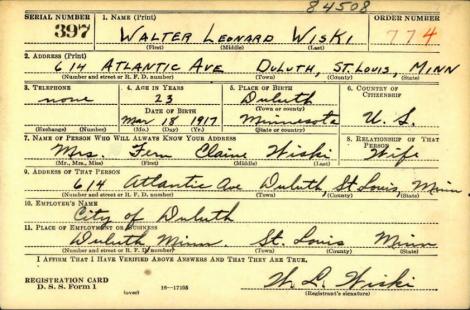 84508
SERIAL NUMBER 1. NAME (Print) ORDER NUMBER
397 WALTER LEONARD WISKI 774
(First) (Middle) (Last)
2. ADDRESS (Print)
614 ATLANTIC AVE DULUTH, ST. LOUIS, MINN
(Number and street or R. F. D. number) (Town) (County) (State)
3. TELEPHONE 4. AGE IN YEARS 5. PLACE OF BIRTH 6. COUNTRY OF CITIZENSHIP
none 23 Duluth
DATE OF BIRTH (Town or county)
Mar 18 1917 Minnesota U. S.
(Exchange) (Number) (Mo.) (Day) (Yr.) (State or country)
7. NAME OF PERSON WHO WILL ALWAYS KNOW YOUR ADDRESS 8. RELATIONSHIP OF THAT PERSON
Mrs. Fern Claire Wiski Wife
(Mr., Mrs., Miss) (First) (Middle) (Last)
9. ADDRESS OF THAT PERSON
614 Atlantic Ave Duluth St Louis Minn.
(Number and street or R. F. D. number) (Town) (County) (State)
10. EMPLOYER'S NAME
City of Duluth
11. PLACE OF EMPLOYMENT OR BUSINESS
Duluth, Minn. St. Louis Minn
(Number and street or R. F. D. number) (Town) (County) (State)
I AFFIRM THAT I HAVE VERIFIED ABOVE ANSWERS AND THAT THEY ARE TRUE.
REGISTRATION CARD W. L. Wiski
D. S. S. Form 1 (over) 16—17105 (Registrant's signature)